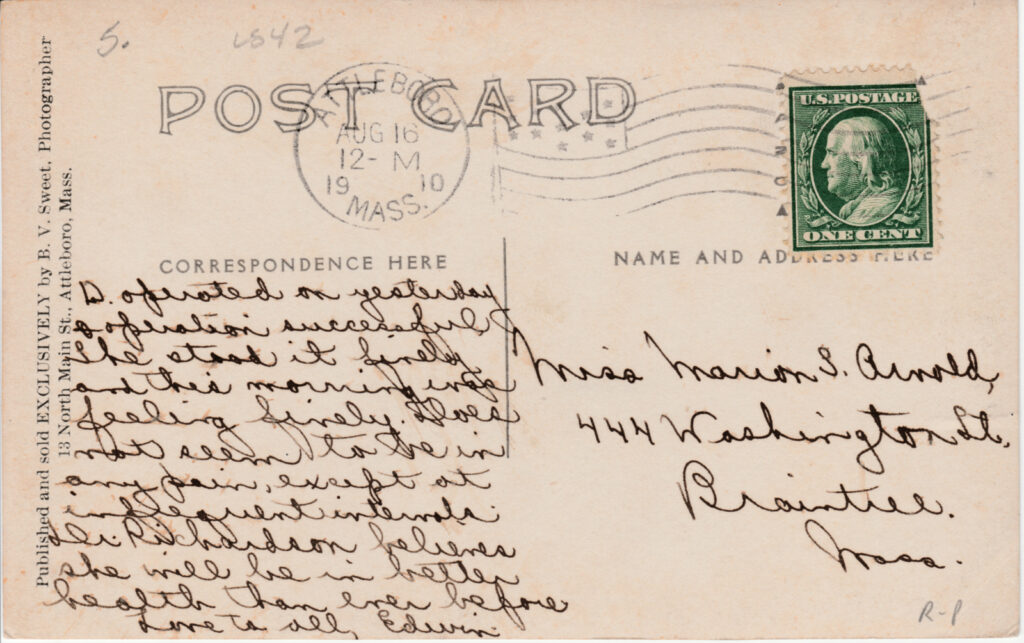 S. 1542
POST CARD
ATTLEBORO
AUG 16
12- M
19 10
MASS.
U.S. POSTAGE
ONE CENT
Published and sold EXCLUSIVELY by B. V. Sweet, Photographer
13 North Main St., Attleboro, Mass.
CORRESPONDENCE HERE
D. operated on yesterday
operation successful
She stood it finely
and this morning was
feeling finely. Does
not seem to be in
any pain, except at
infrequent intervals.
Dr. Richardson believes
she will be in better
health than ever before
Love to all, Edwin.
NAME AND ADDRESS HERE
Miss Marion S. Arnold,
444 Washington St.
Braintree.
Mass.
R-P